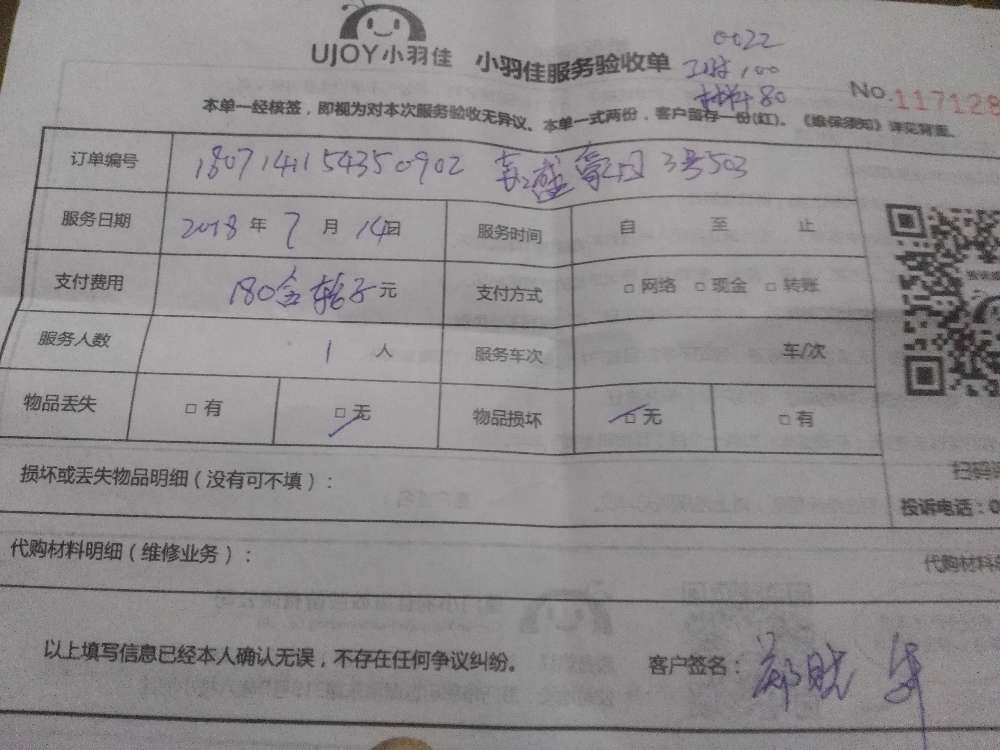 UJOY小羽佳
小羽佳服务验收单
0022
工时100
材料80
No.117128
本单一经核签，即视为对本次服务验收无异议。本单一式两份，客户留存一份(红)。《维保须知》详见背面。
订单编号 180714154350902 3号503
服务日期 2018年7月14日 服务时间 自 至 止
支付费用 180含转子元 支付方式 □网络 □现金 □转账
服务人数 1人 服务车次 车/次
物品丢失 □有 □无 物品损坏 □无 □有
损坏或丢失物品明细（没有可不填）：
扫码
投诉电话：0
代购材料明细（维修业务）：
代购材料
以上填写信息已经本人确认无误，不存在任何争议纠纷。 客户签名：